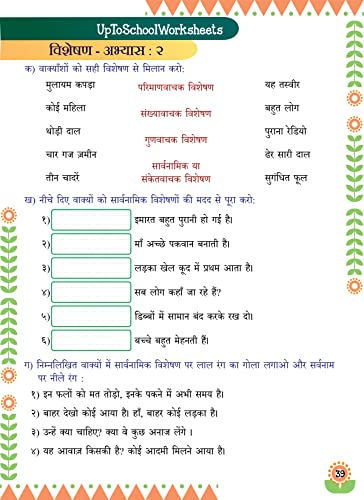 UpToSchoolWorksheets
विशेषण - अभ्यास : २
क) वाक्याँशों को सही विशेषण से मिलान करो:
मुलायम कपड़ा परिमाणवाचक विशेषण यह तस्वीर
कोई महिला संख्यावाचक विशेषण बहुत लोग
थोड़ी दाल गुणवाचक विशेषण पुराना रेडियो
चार गज ज़मीन सार्वनामिक या ढेर सारी दाल
तीन चादरें संकेतवाचक विशेषण सुगंधित फूल
ख) नीचे दिए वाक्यों को सार्वनामिक विशेषणों की मदद से पूरा करो:
१) इमारत बहुत पुरानी हो गई है।
२) माँ अच्छे पकवान बनाती है।
३) लड़का खेल कूद में प्रथम आता है।
४) सब लोग कहाँ जा रहे हैं?
५) डिब्बों में सामान बंद करके रख दो।
६) बच्चे बहुत मेहनती हैं।
ग) निम्नलिखित वाक्यों में सार्वनामिक विशेषण पर लाल रंग का गोला लगाओ और सर्वनाम
पर नीले रंग :
१) इन फलों को मत तोड़ो, इनके पकने में अभी समय है।
२) बाहर देखो कोई आया है। हाँ, बाहर कोई लड़का है।
३) उन्हें क्या चाहिए? क्या वे कुछ अनाज लेंगे ।
४) यह आवाज़ किसकी है? कोई आदमी मिलने आया है।
39